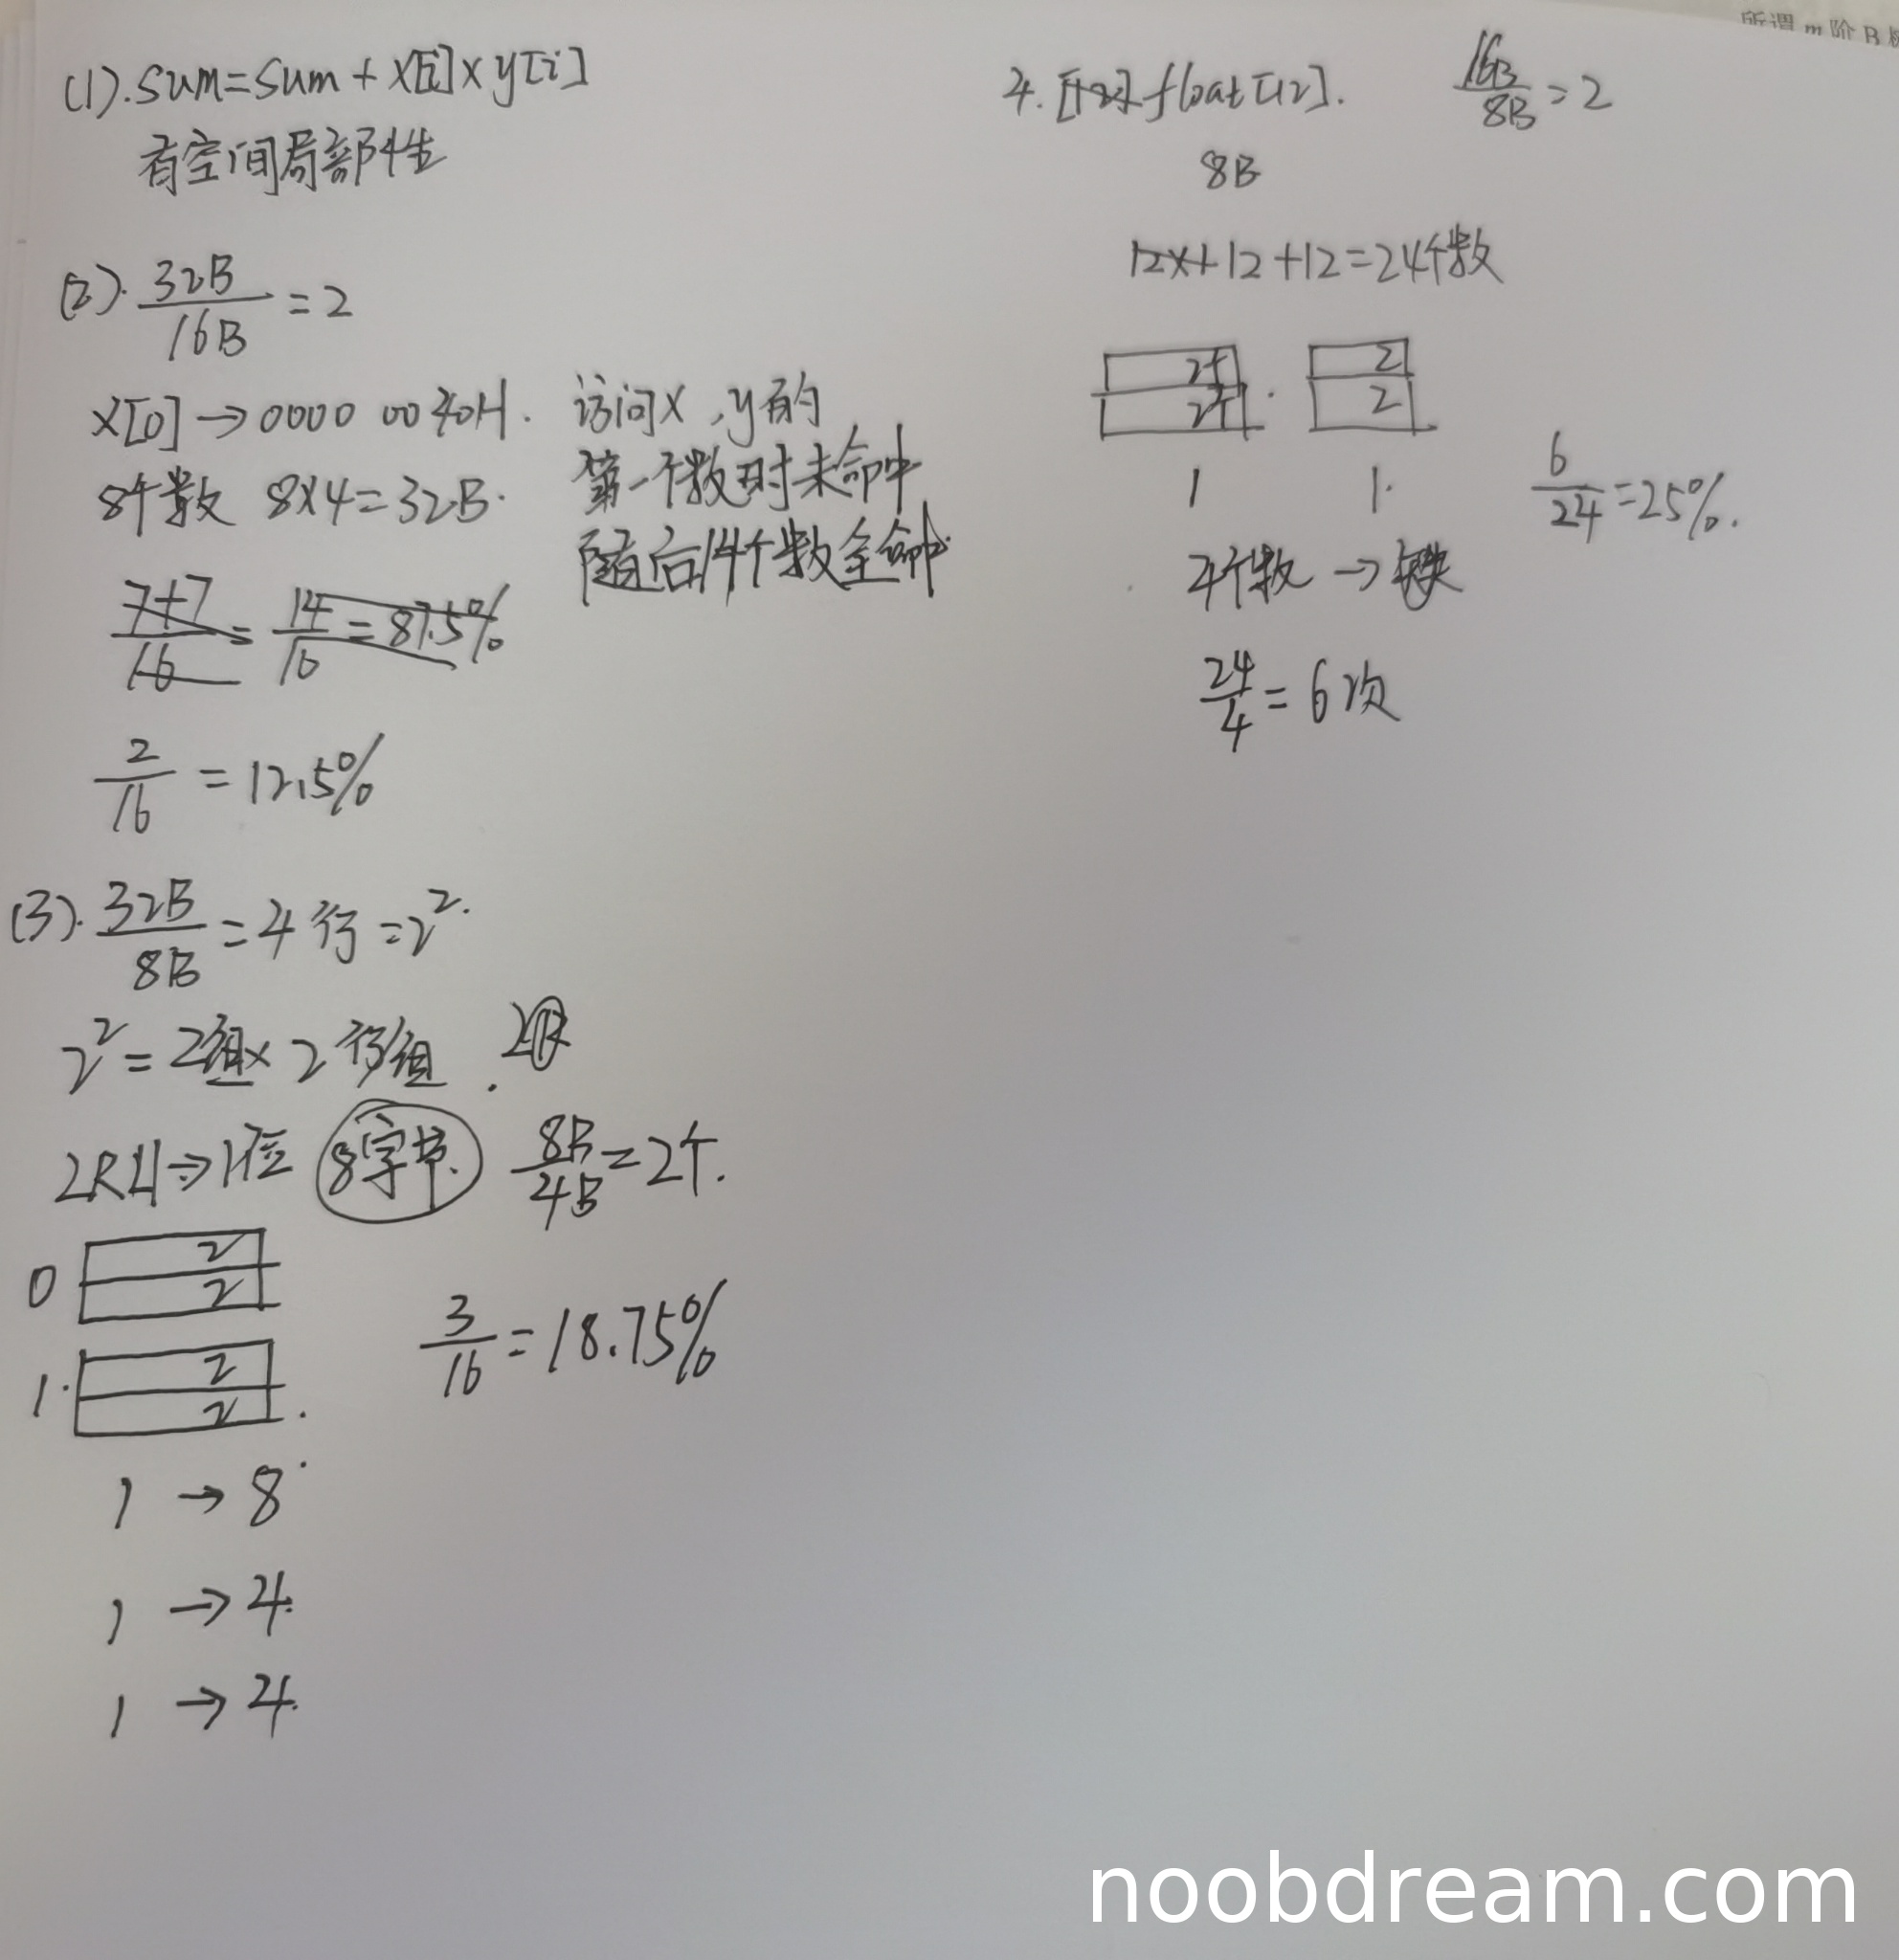 所谓 m 阶 B
(1). sum=sum + x[i]×y[i]
有空间局部性
(2). 32B/16B = 2
x[0] → 0000 0040H.
8个数 8×4=32B.
访问x,y的
第一个数时未命中
随后14个数全命中.
7+7/16 = 14/16 = 87.5%
2/16 = 12.5%
(3). 32B/8B = 4行 = 2².
2² = 2组× 2行/组.
LRU → 1位 8字节. 8B/4B = 2个.
0 2
2
1. 2
2
3/16 = 18.75%
1 → 8
1 → 4
1 → 4.
4. float[12]. 16B/8B = 2
8B
12×1 12+12=24个数
2个 2
2个 2
1 1.
4个数 → 缺失
24/4 = 6次
6/24 = 25%.
noobdream.com